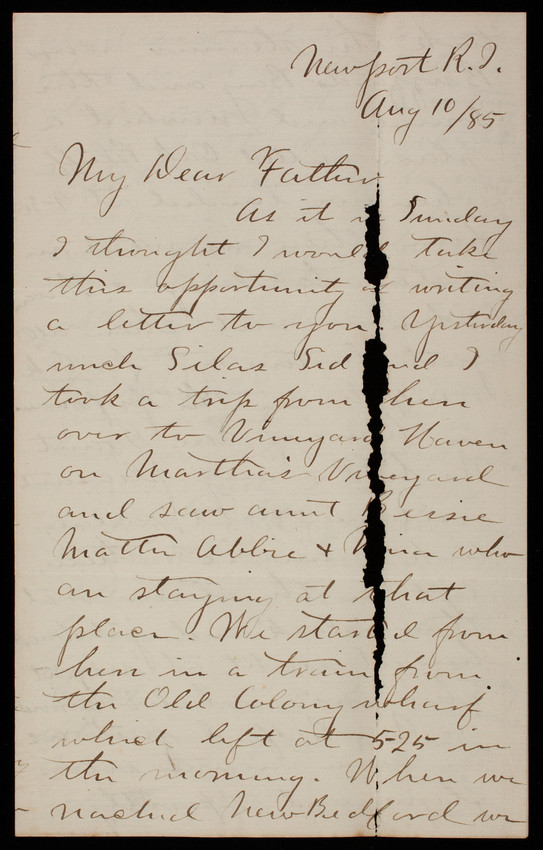 Newport R.I.
Aug 10/85
My Dear Father
As it is Sunday
I thought I would take
this opportunity of writing
a letter to you. Yesterday
uncle Silas Sid and I
took a trip from here
over to Vineyard Haven
on Martha's Vineyard
and saw aunt Bessie
Abbie + Nina who
are staying at that
place. We started from
here in a train from
the Old Colony wharf
which left at 5 25 in
the morning. When we
reached New Bedford we